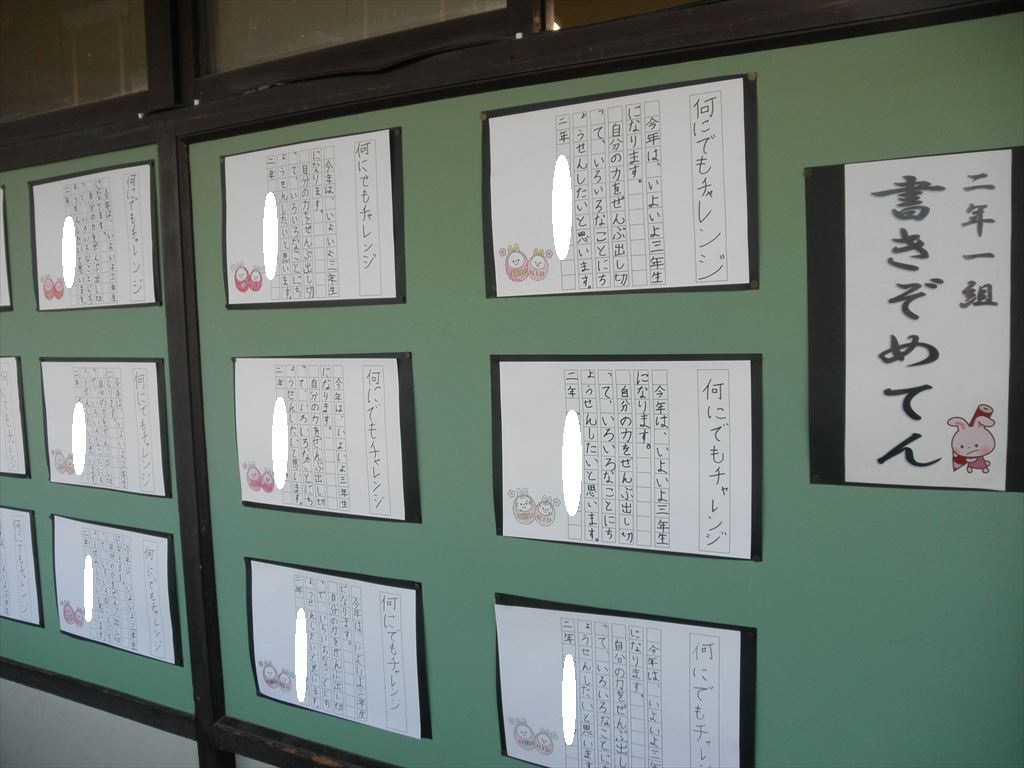 二年一組
書きぞめてん
何にでもチャレンジ
今年は、いよいよ三年生
になります。
自分の力をぜんぶ出し切
って、いろいろなことにち
ょうせんしたいと思います。
二年
何にでもチャレンジ
今年は、いよいよ三年生
になります。
自分の力をぜんぶ出し切
って、いろいろなことにち
ょうせんしたいと思います。
二年
何にでもチャレンジ
今年は、いよいよ三年生
になります。
自分の力をぜんぶ出し切
って、いろいろなことにち
ょうせんしたいと思います。
二年
何にでもチャレンジ
今年は、いよいよ三年生
になります。
自分の力をぜんぶ出し切
って、いろいろなことにち
ょうせんしたいと思います。
二年
何にでもチャレンジ
今年は、いよいよ三年生
になります。
自分の力をぜんぶ出し切
って、いろいろな
ょうせんしたいと思います。
二年
何にでもチャレンジ
今年は、いよいよ三年生
になります。
自分の力をぜんぶ出し切
って、いろいろなことにち
ょうせんしたいと思います。
二年
何にでもチャレン
今年は、いよいよ三年
になります。
自分の力をぜんぶ出し
って、いろいろなことに
ょうせんしたいと思います
二年
何にでもチャレンジ
今年は、いよいよ三年生
になります。
自分の力をぜんぶ出し切
って、いろいろなことにち
ょうせんしたいと思います。
二年
何にでもチャレンジ